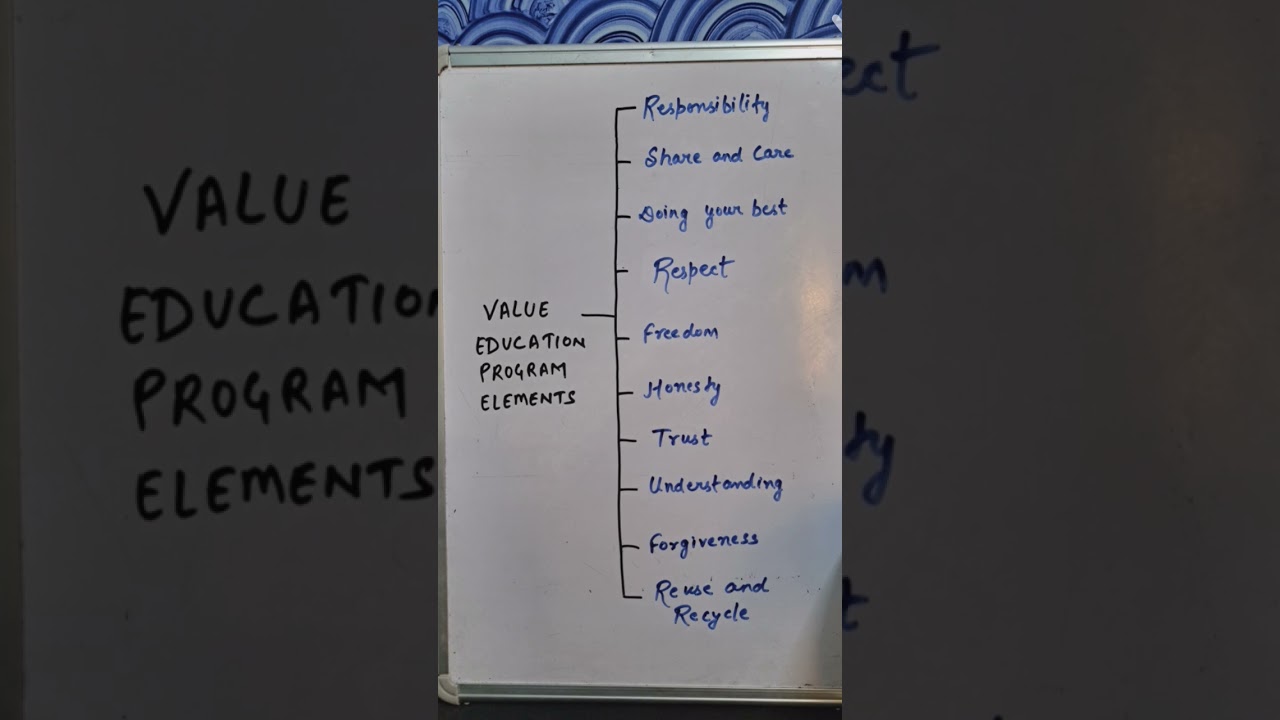 VALUE
EDUCATION
PROGRAM
ELEMENTS
Responsibility
Share and Care
Doing your best
Respect
Freedom
Honesty
Trust
Understanding
Forgiveness
Reuse and
Recycle